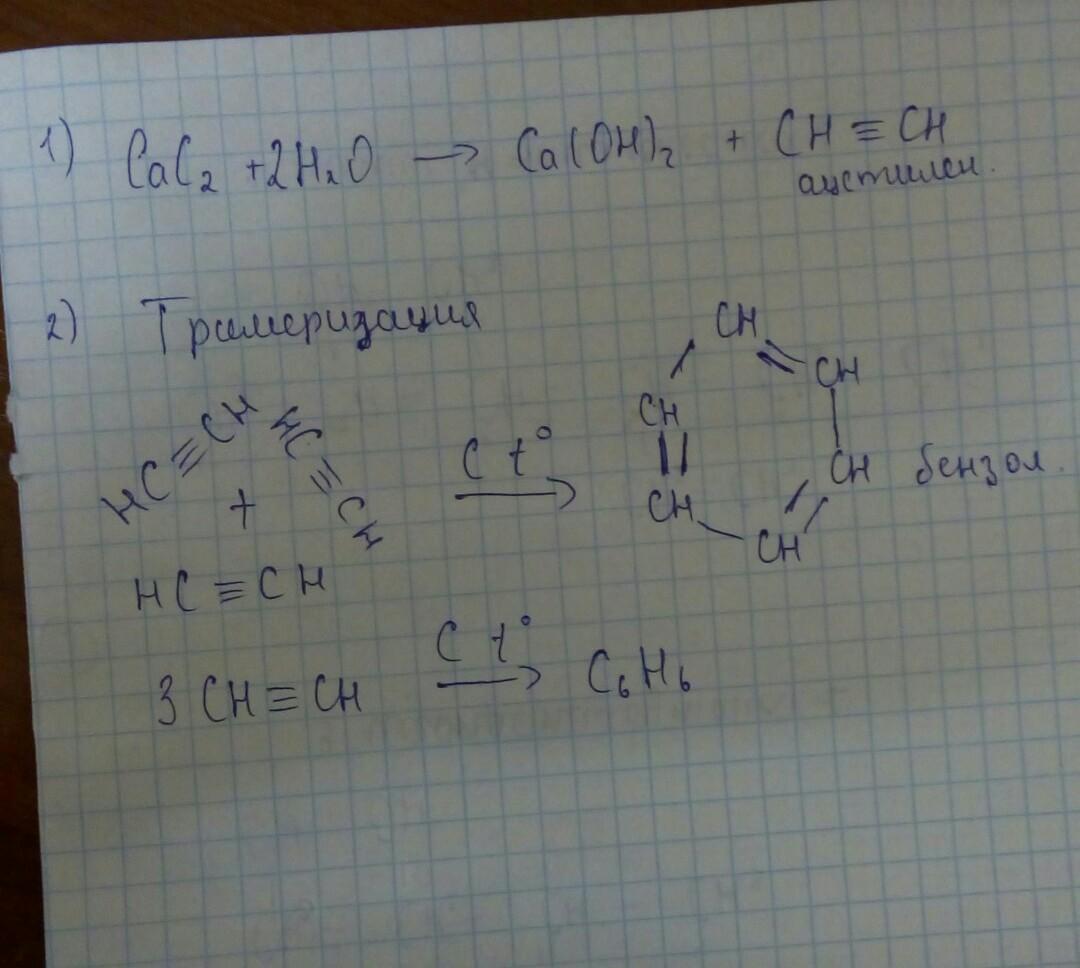 1) CaC₂ + 2H₂O → Ca(OH)₂ + CH ≡ CH
ацетилен.
2) Тримеризация
HC ≡ CH HC ≡ CH
+
HC ≡ CH
C t°
→
CH
CH
CH
CH
CH
CH
бензол.
3 CH ≡ CH C t° → C₆H₆